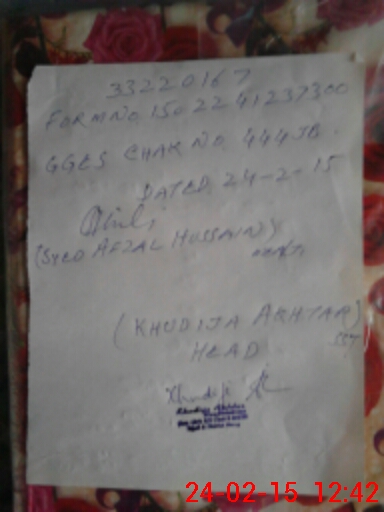 33220167
FORM NO. 150 22 41237300
GGES CHAK NO. 444 JB.
DATED. 24-2-15
(SYED AFZAL HUSSAIN)
(KHUDIJA AKHTAR)
HEAD SST
24-02-15 12:42